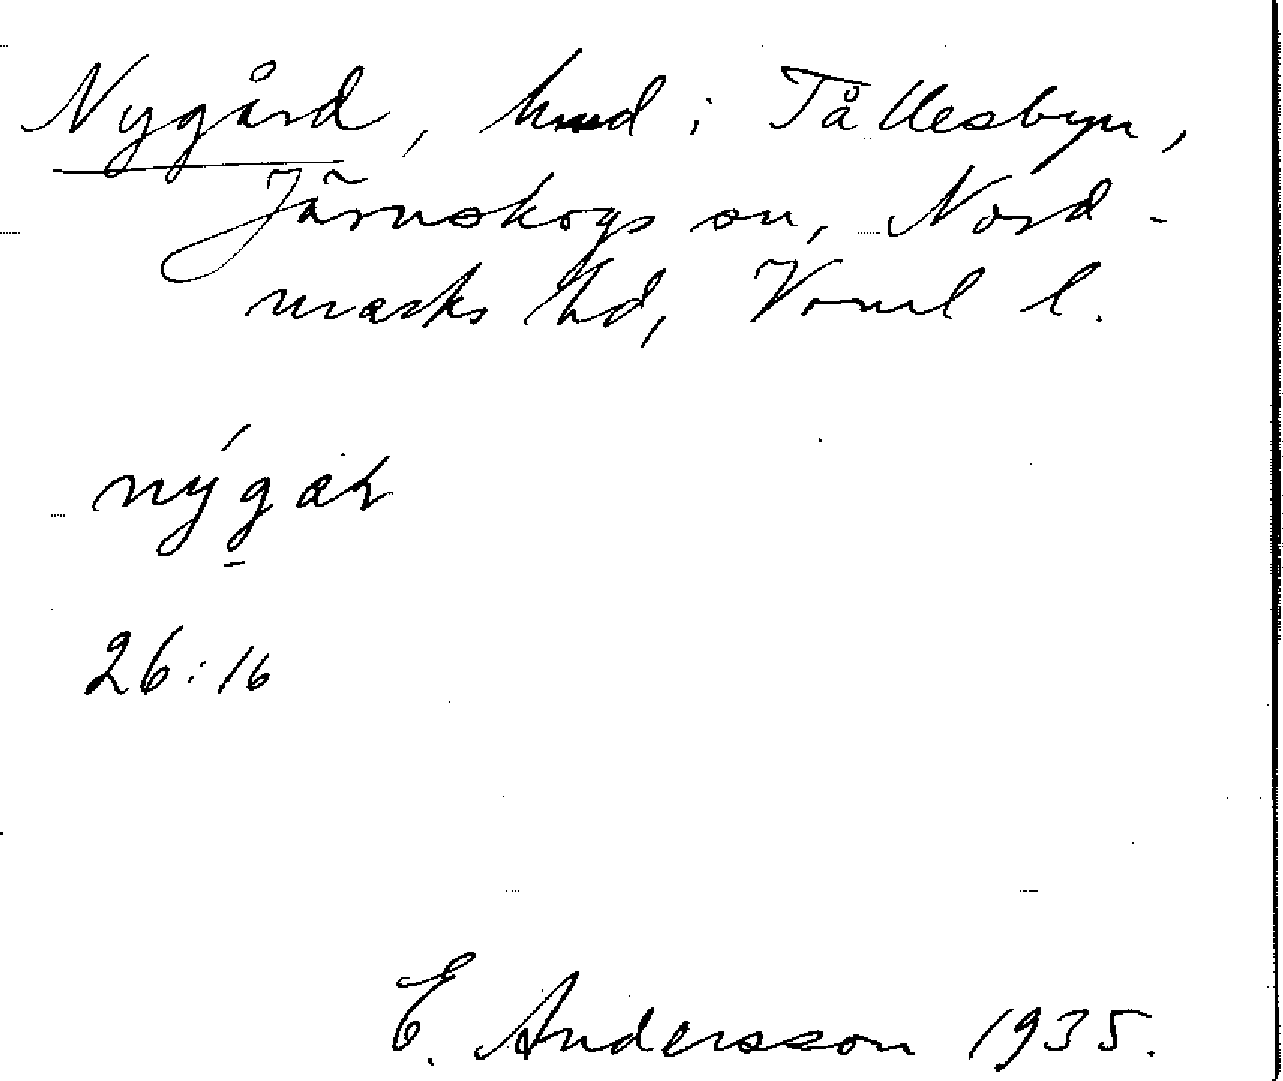 Nygård, hmd i Tållesbyn,
Järnskogs sn, Nord-
marks hd, Vrml l.
nýgaṙ
26:16
E. Andersson 1935.